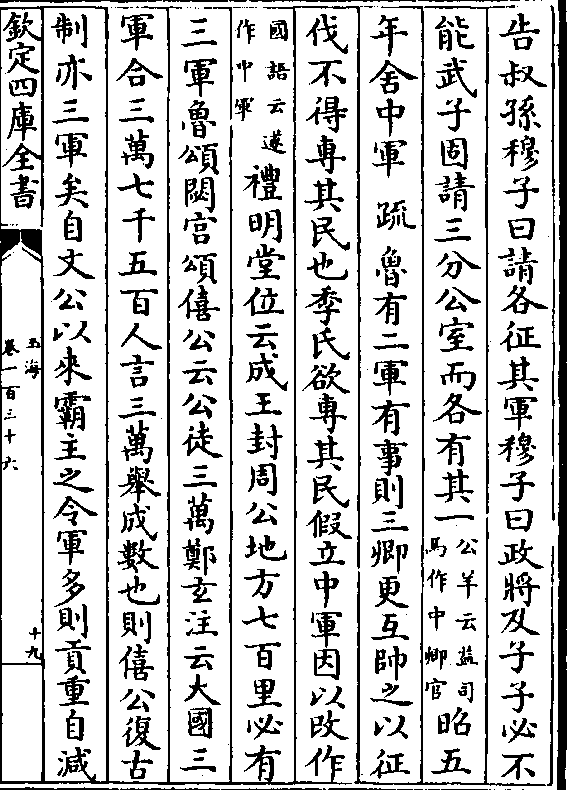 告叔孫穆子曰請各征其軍穆子曰政將及子子必不
能武子固請三分公室而各有其一公羊云益司馬作中卿官昭五
年舍中軍 疏魯有二軍有事則三卿更互帥之以征
伐不得專其民也季氏欲專其民假立中軍因以改作
國語云遂作中軍禮明堂位云成王封周公地方七百里必有
三軍魯頌閟宮頌僖公云公徒三萬鄭玄注云大國三
軍合三萬七千五百人言三萬舉成數也則僖公復古
制亦三軍矣自文公以來霸主之令軍多則貢重自減
欽定四庫全書
玉海
卷一百三十六
十九